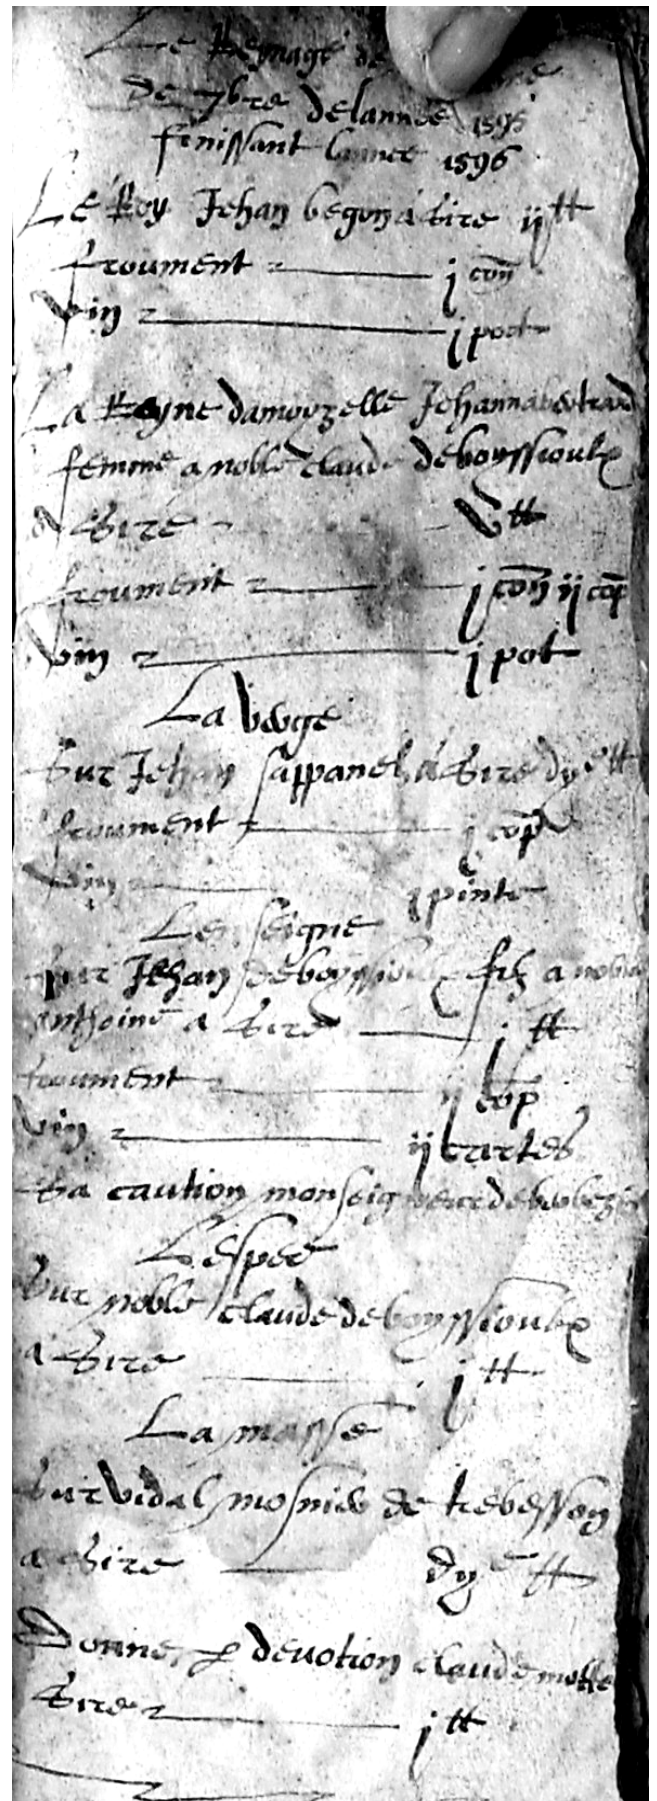 Le Reynage de
de 7bre de lannee 1595
finissant lannee 1596
Le Roy Jehan begon a sire ij ₶
froument j con
vin j pot
La Reyne damoyzelle Jehanna bertrand
femme a noble claude de boyssioulx
a sire V ₶
froument j con ij cop
vin j pot
La verge
sur Jehan sappanel a sire dye ₶
froument j cop
vin j pinte
Lenseigne
sur Jehan de boyssioulx filz a noble
anthoine a sire j ₶
froument ij cop
vin ij cartes
sa caution monseigneur de
Lespee
sur noble claude de boyssioulx
a sire j ₶
La masse
sur vidal mosnier de trebesson
a sire dye ₶
Donne p devotion claude motte
sire j ₶